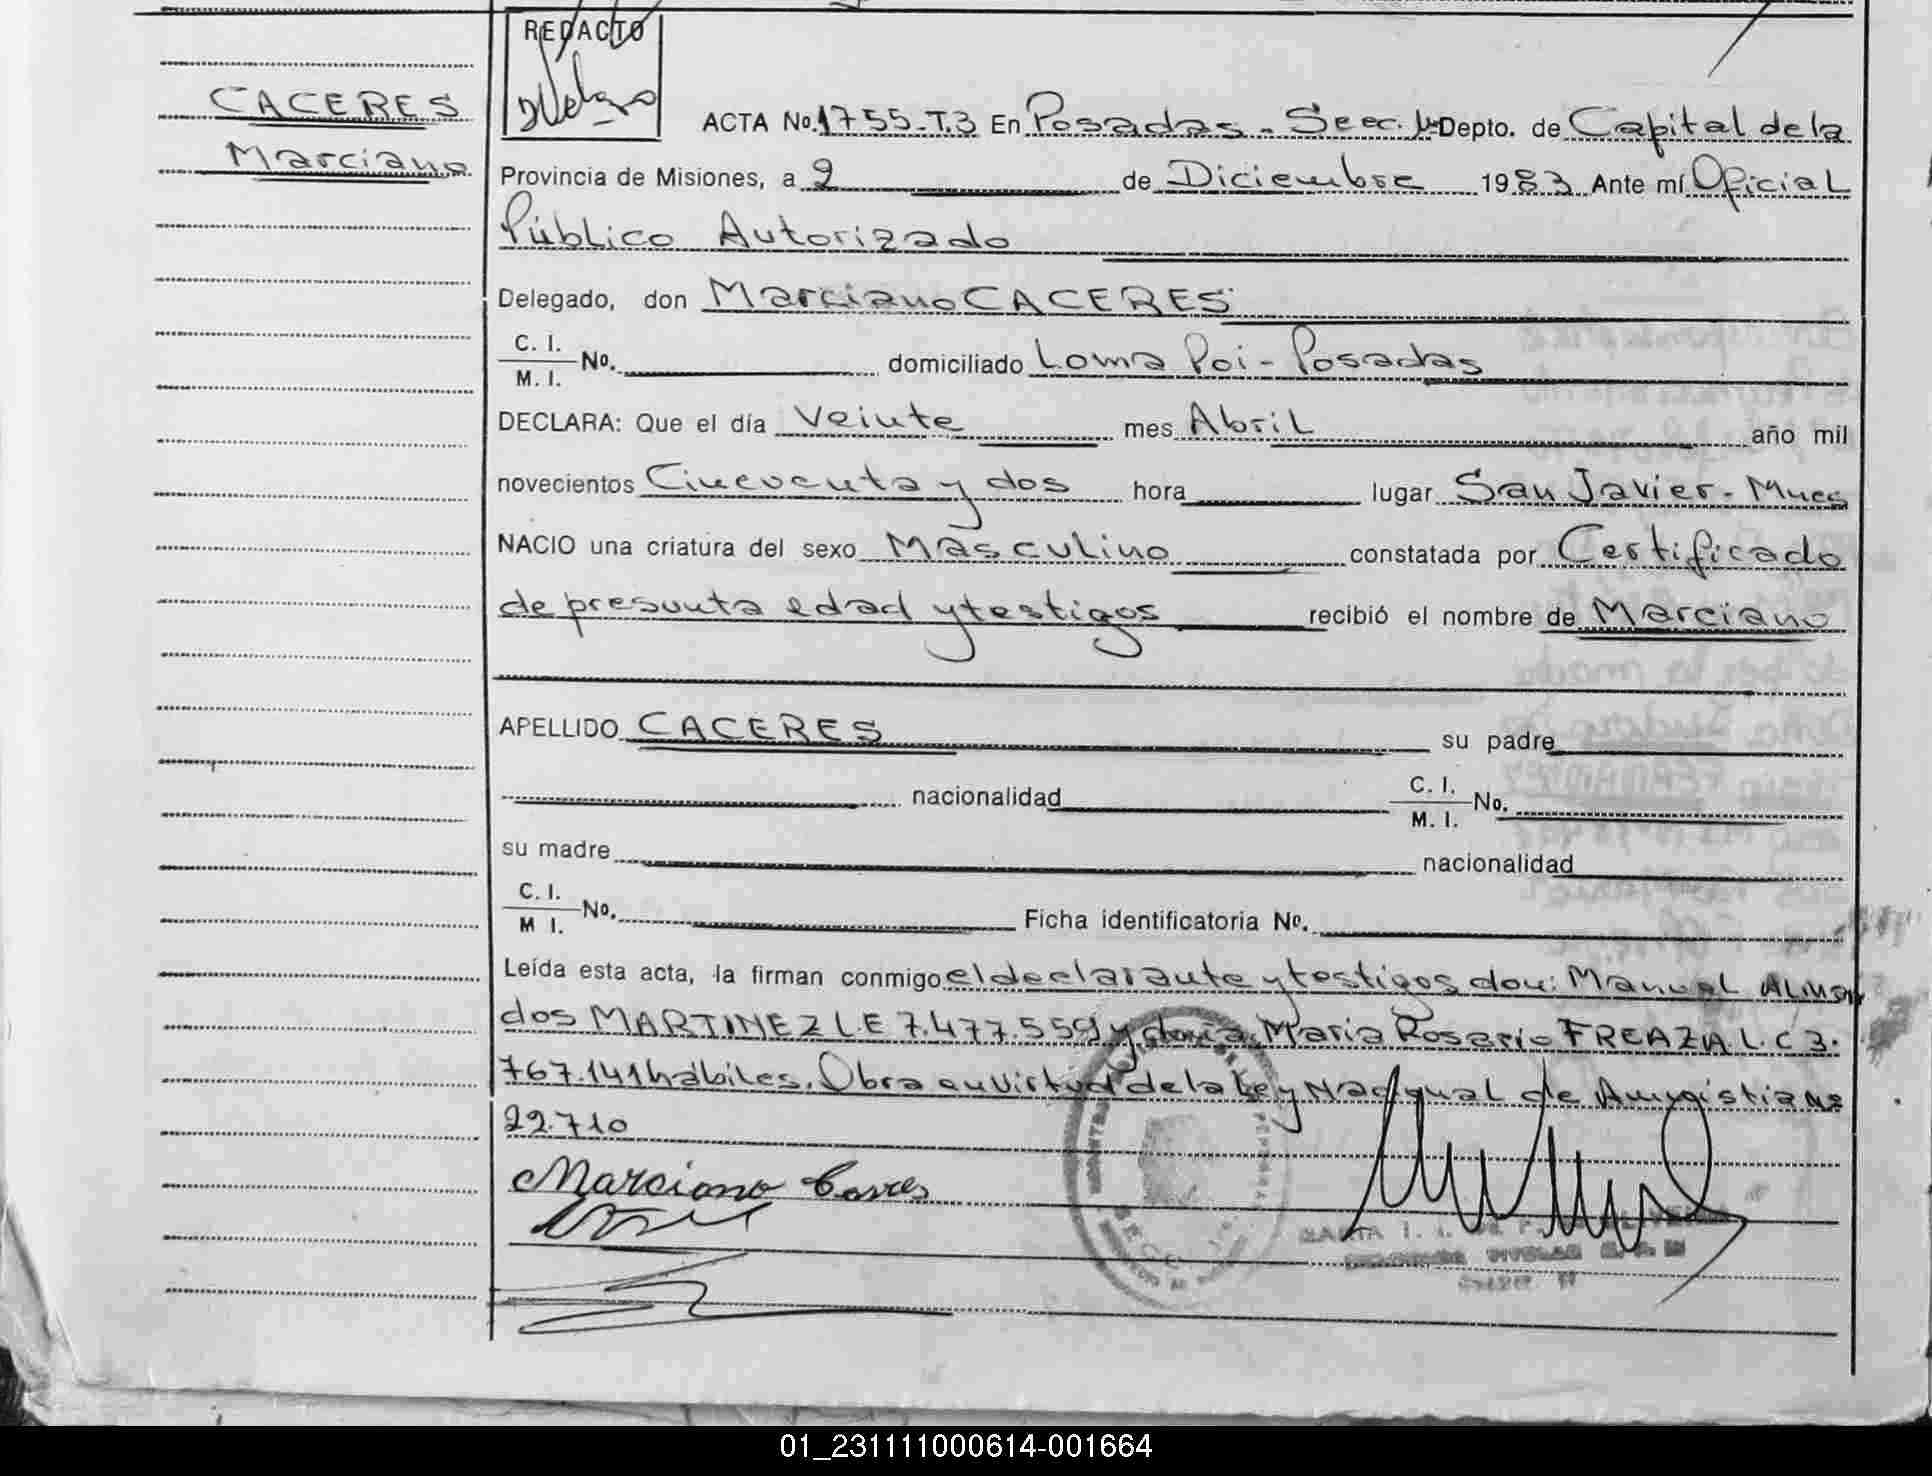 REDACTO
CACERES
Marciano
ACTA No. 1755-T.3 En Posadas - Secc. 1ª Depto. de Capital de la
Provincia de Misiones, a 2 de Diciembre 1983 Ante mí Oficial
Público Autorizado
Delegado, don Marciano CACERES
C. I.
M. I. No. domiciliado Loma Poi - Posadas
DECLARA: Que el día Veinte mes Abril año mil
novecientos Cincuenta y dos hora lugar San Javier - Mnes
NACIO una criatura del sexo Masculino constatada por Certificado
de presunta edad y testigos recibió el nombre de Marciano
APELLIDO CACERES su padre
nacionalidad C. I.
M. I. No.
su madre nacionalidad
C. I.
M I. No. Ficha identificatoria No.
Leída esta acta, la firman conmigo el declarante y testigos don: Manuel
dos MARTINEZ LE 7.477.559 y doña Maria Rosario FREAZA L.C 3.
767.141 hábiles. Obra en virtud de la Ley Nacional de Amnistia Nº
22.710
Marciano
01_231111000614-001664